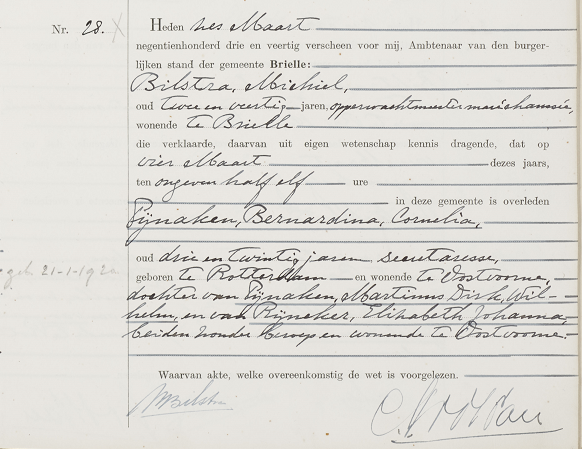 Nr. 28.
Heden zes Maart
negentienhonderd drie en veertig verscheen voor mij, Ambtenaar van den burger-
lijken stand der gemeente Brielle:
Bilstra, Michiel,
oud twee en veertig jaren, opperwachtmeester marechaussée,
wonende te Brielle
die verklaarde, daarvan uit eigen wetenschap kennis dragende, dat op
vier Maart dezes jaars,
ten ongeveer half elf ure
in deze gemeente is overleden
Pijnaken, Bernardina, Cornelia,
oud drie en twintig jaren, secretaresse,
geboren te Rotterdam en wonende te Oostvoorne,
dochter van Pijnaken, Martinus Dirk, Wil-
helm, en van Rijneker, Elisabeth Johanna,
beiden zonder beroep en wonende te Oostvoorne.
geb 21-1-1920
Waarvan akte, welke overeenkomstig de wet is voorgelezen.
MBilstra